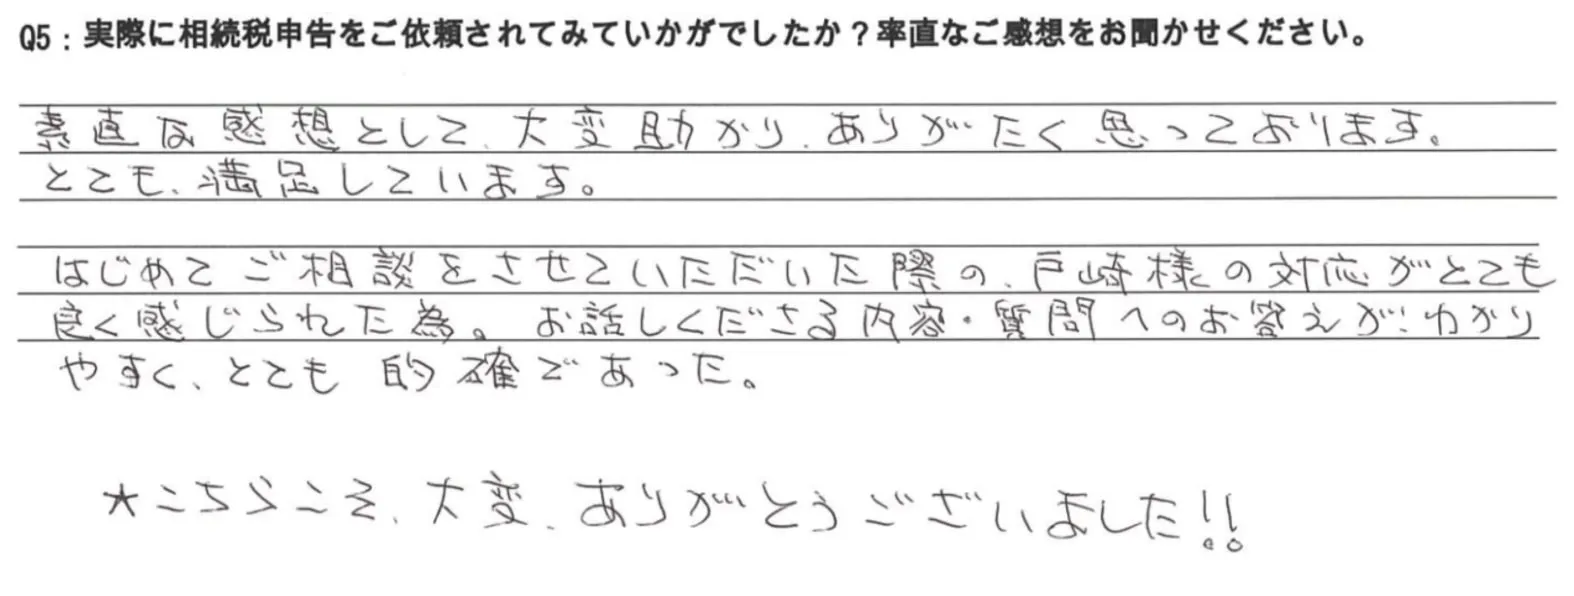 Q5：実際に相続税申告をご依頼されてみていかがでしたか？率直なご感想をお聞かせください。
素直な感想として、大変助かり、ありがたく思っております。
とても、満足しています。
はじめてご相談をさせていただいた際の、戸崎様の対応がとても
良く感じられた為。お話しくださる内容・質問へのお答えが、わかり
やすく、とても 的確であった。
★こちらこそ、大変、ありがとうございました!!